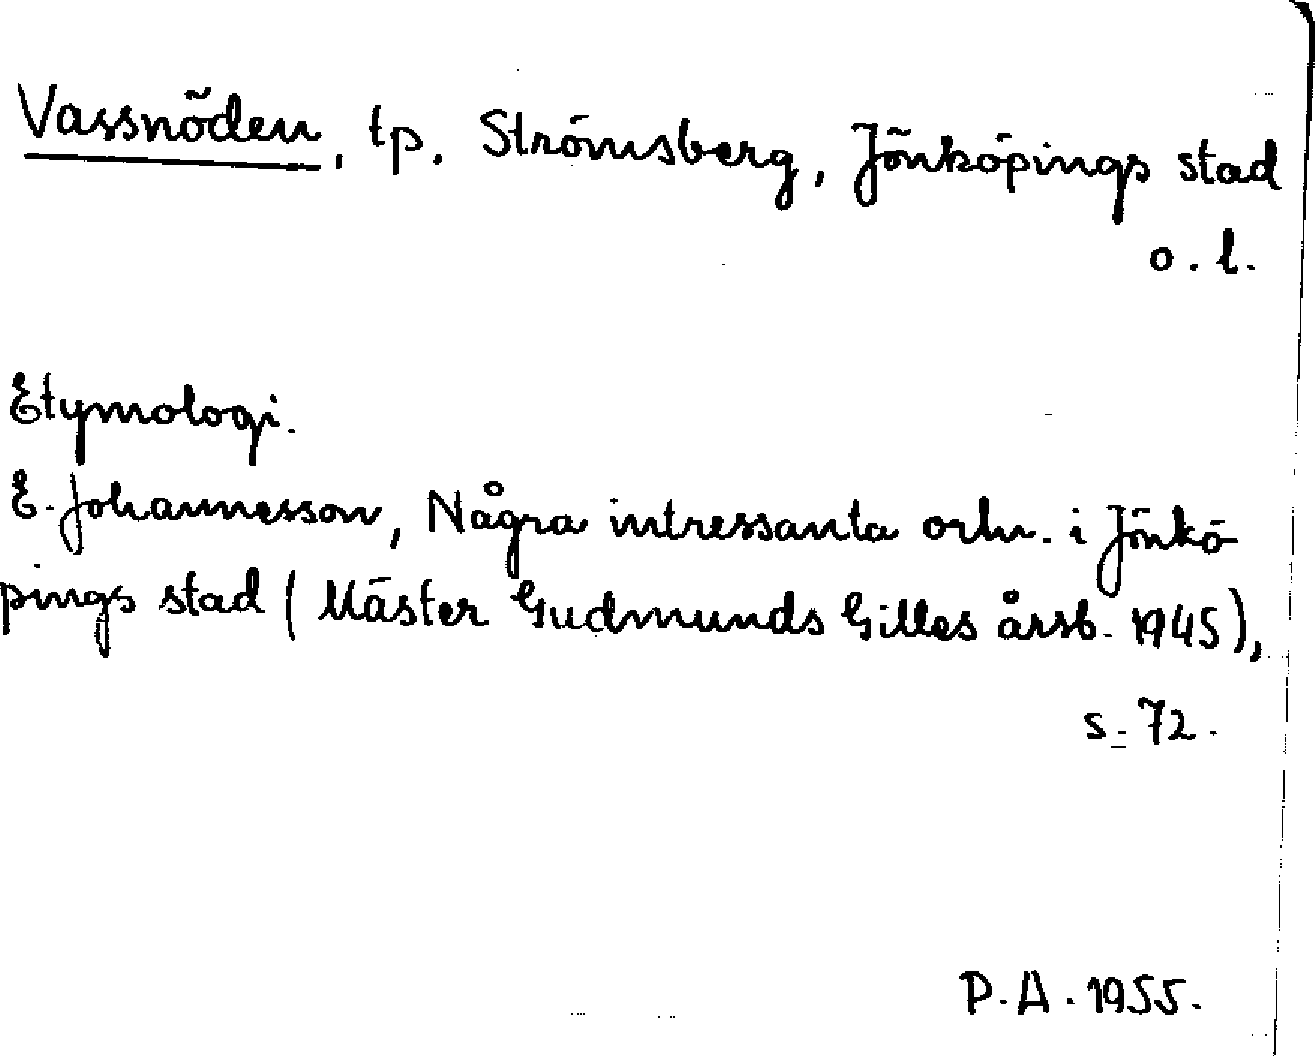 Vassnöden, tp. Strömsberg, Jönköpings stad
o. l.
Etymologi.
E. Johannesson, Några intressanta ortn. i Jönkö
pings stad (Mäster Gudmunds Gilles årsb. 1945),
s. 72.
P. A. 1955.